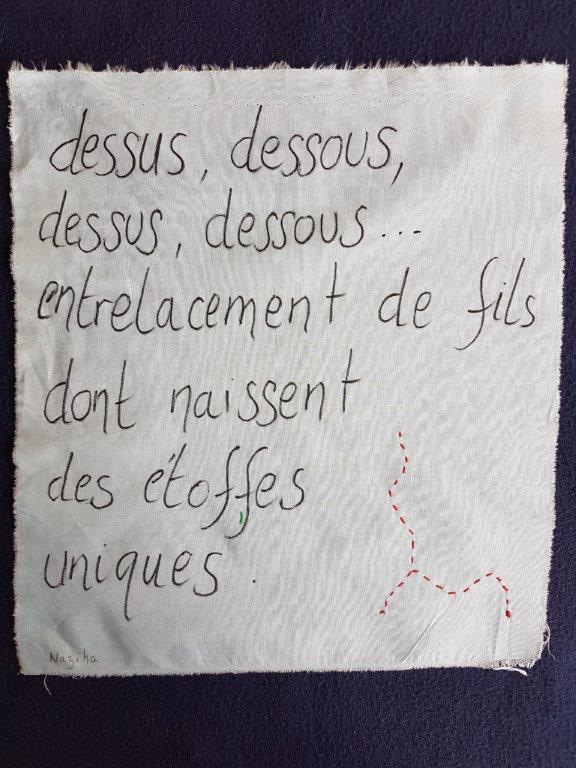 dessus, dessous,
dessus, dessous...
entrelacement de fils
dont naissent
des étoffes
uniques.
Naziha